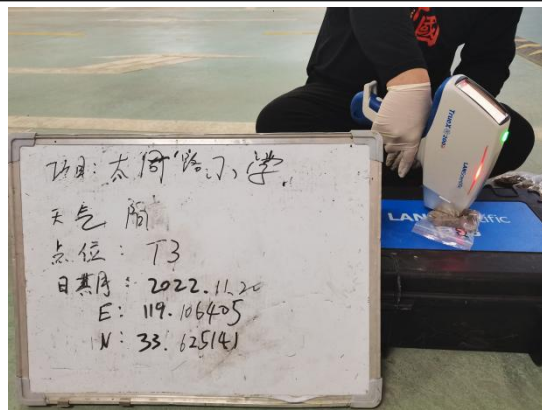 项目: 太同路小学
天气 阴
点位: T3
日期: 2022.11.20
E: 119.106405
N: 33.625141
國
TrueX 200S
LANScientific